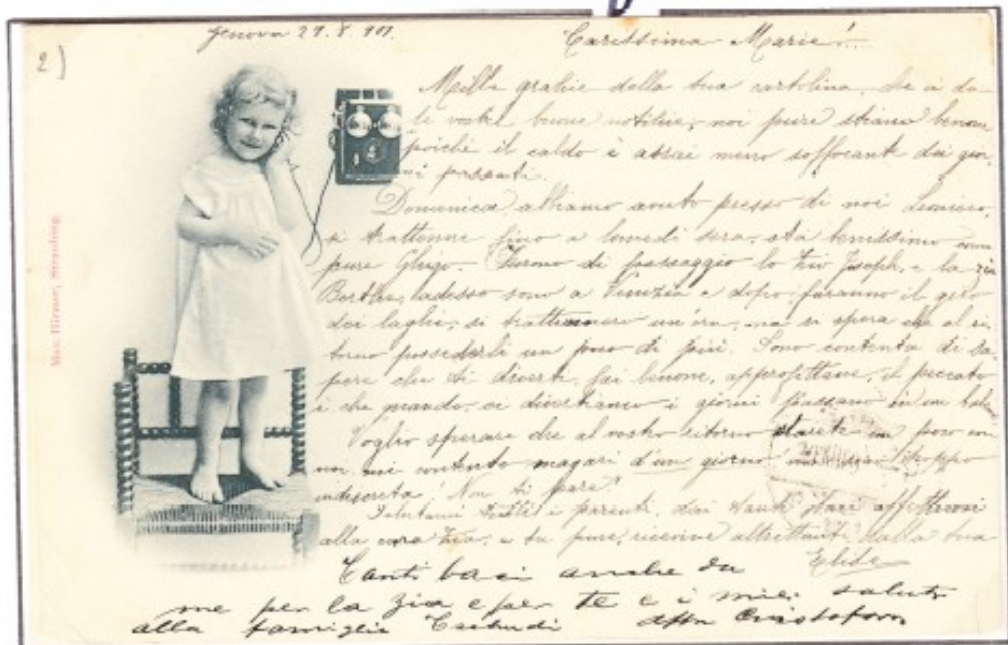 2)
Genova 29.8.901.
Carissima Marie!
Mille grazie della tua cartolina, che ci da
le vostre buone notizie; noi pure stiamo benone
poichè il caldo è assai meno soffocante dei gior
ni passati.
Domenica abbiamo avuto presso di noi
si trattenne fino a lunedì sera, sta benissimo come
pure Ghigo. Furono di passaggio lo zio Joseph, e la zia
Bertha, adesso sono a Venezia e dopo faranno il giro
dei laghi; si trattennero un'ora, ma si spera che al ri
torno possederli un poco di più. Sono contenta di sa
pere che ti diverti, fai benone, approfittane, il peccato
è che quando ci divertiamo i giorni passano in un
Voglio sperare che al vostro ritorno starete un poco con
noi, mi contento magari d'un giorno troppo
indiscreta! Non ti pare?
Salutami tutti i parenti, dai tanti baci affettuosi
alla cara zia, e tu pure, ricevine altrettanti dalla tua
Elise
Tanti baci anche da
me per la zia e per te e i miei saluti
alla famiglia Tschudi Cristoforo
Max. Hirmer, Straubing.